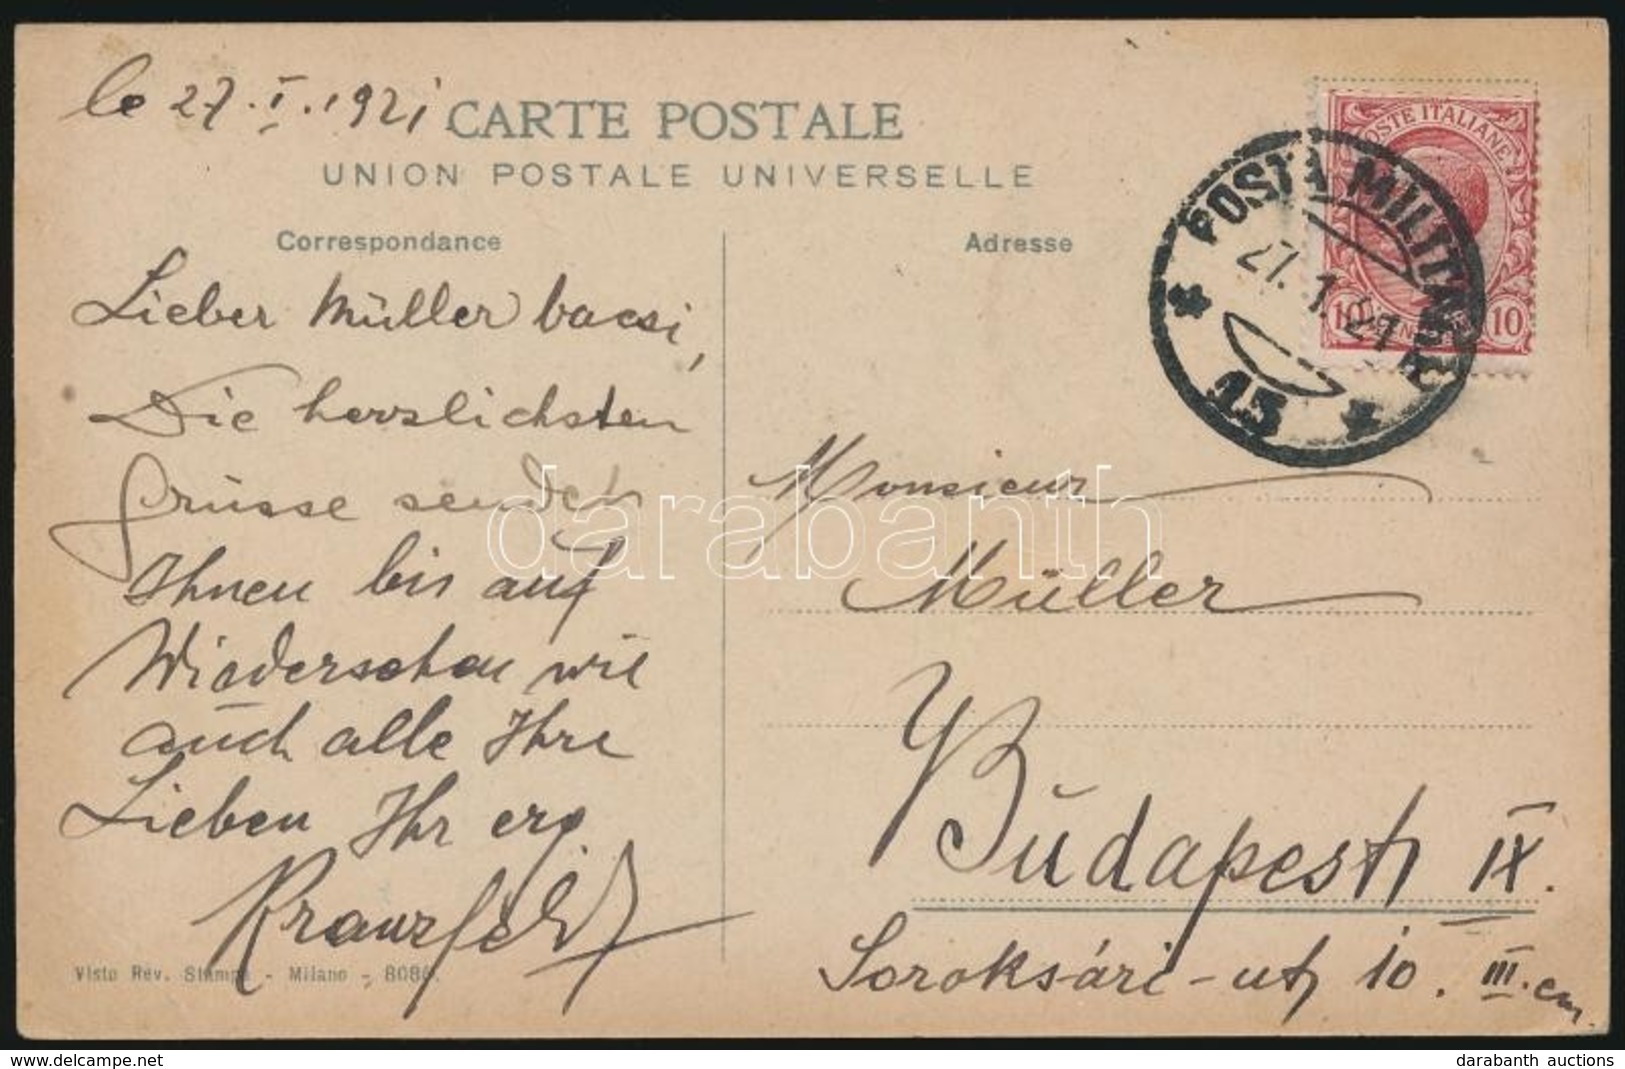 le 27.I.1921
CARTE POSTALE
UNION POSTALE UNIVERSELLE
Correspondance
Adresse
POSTE ITALIANE
10 10
POSTA MILITARE
27.1.21
15
Lieber Müller bacsi,
Die herzlichsten
Grüsse senden
Ihnen bis auf
Wiedersehen wie
auch alle Ihre
Lieben Ihr erg.
Monsieur
Müller
Budapest IX.
Soroksári-ut 10. III. em.
Visto Rev. Stampa - Milano -
darabanth
darabanth auctions